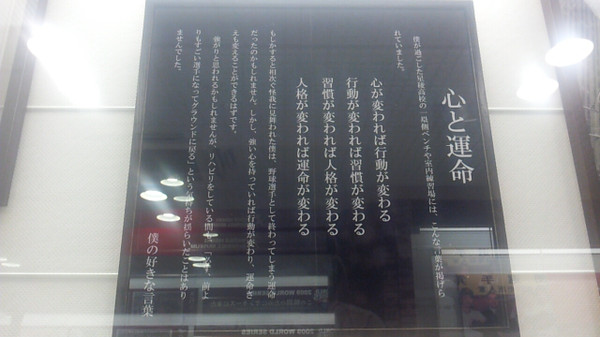 心と運命
僕が過ごした星稜高校の一塁側ベンチや室内練習場には、こんな言葉が掲げら
れていました。
心が変われば行動が変わる
行動が変われば習慣が変わる
習慣が変われば人格が変わる
人格が変われば運命が変わる
もしかすると相次ぐ怪我に見舞われた僕は、野球選手として終わってしまう運命
だったのかもしれません。しかし、強い心を持っていれば行動が変わり、運命さ
えも変えることができるはずです。
強がりと思われるかもしれませんが、リハビリをしている間も、前よ
りもすごい選手になってグラウンドに戻る」という気持ちが揺らいだことはあり
ませんでした。
僕の好きな言葉
2009 WORLD SERIES